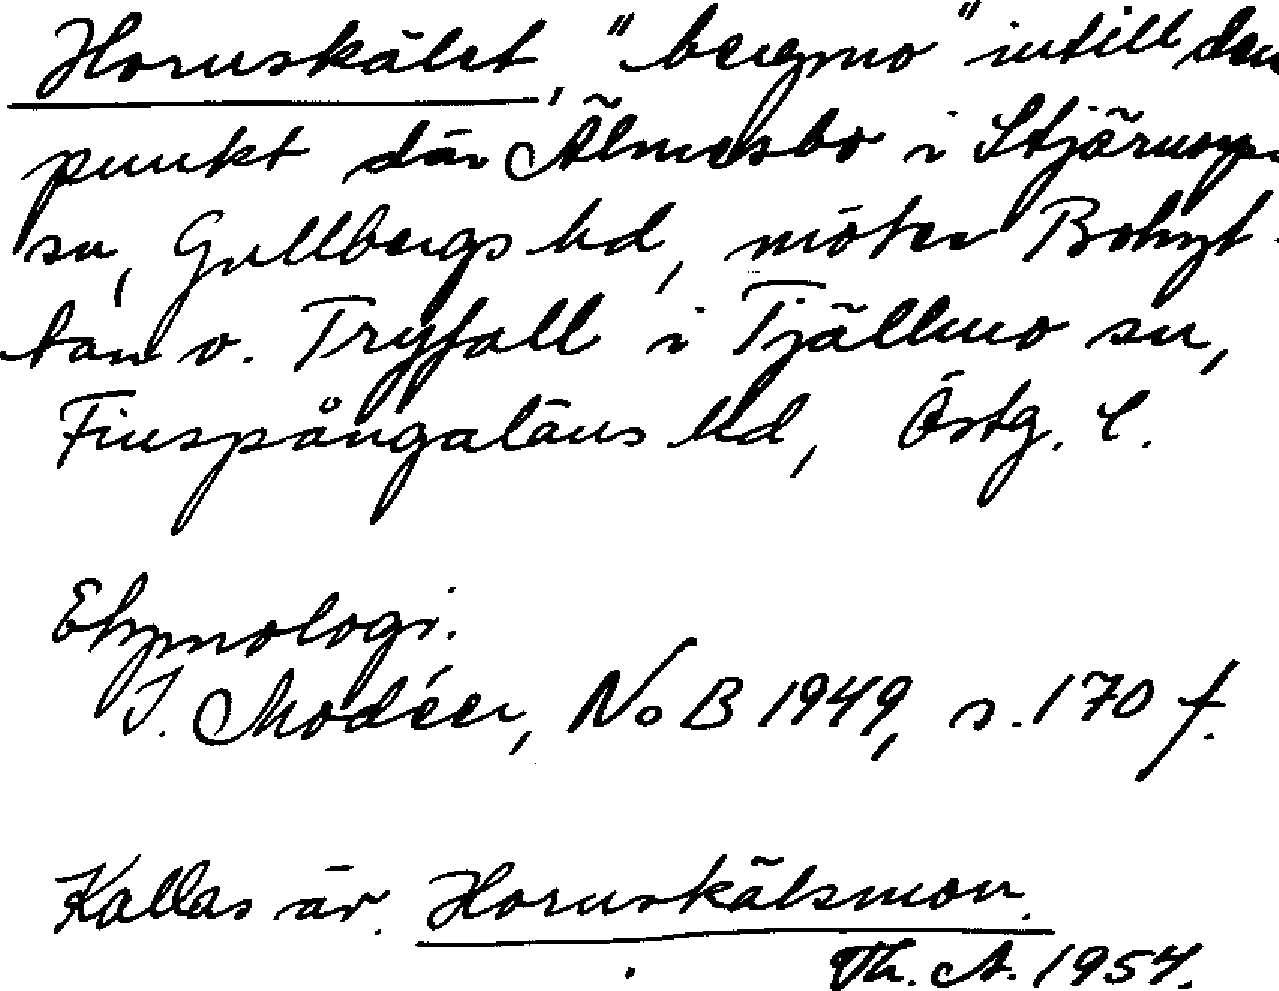 Hornskälet, "bergmo" intill den
punkt där Älmesbo i Stjärnorps
sn, Gullbergs hd, möter Bohyt-
tan o. Tryfall i Tjällmo sn,
Finspångaläns hd, Östg. l.
Etymologi.
I. Modéer, NoB 1949, s. 170 f.
Kallas äv. Hornskälsmon.
Th. A. 1954.